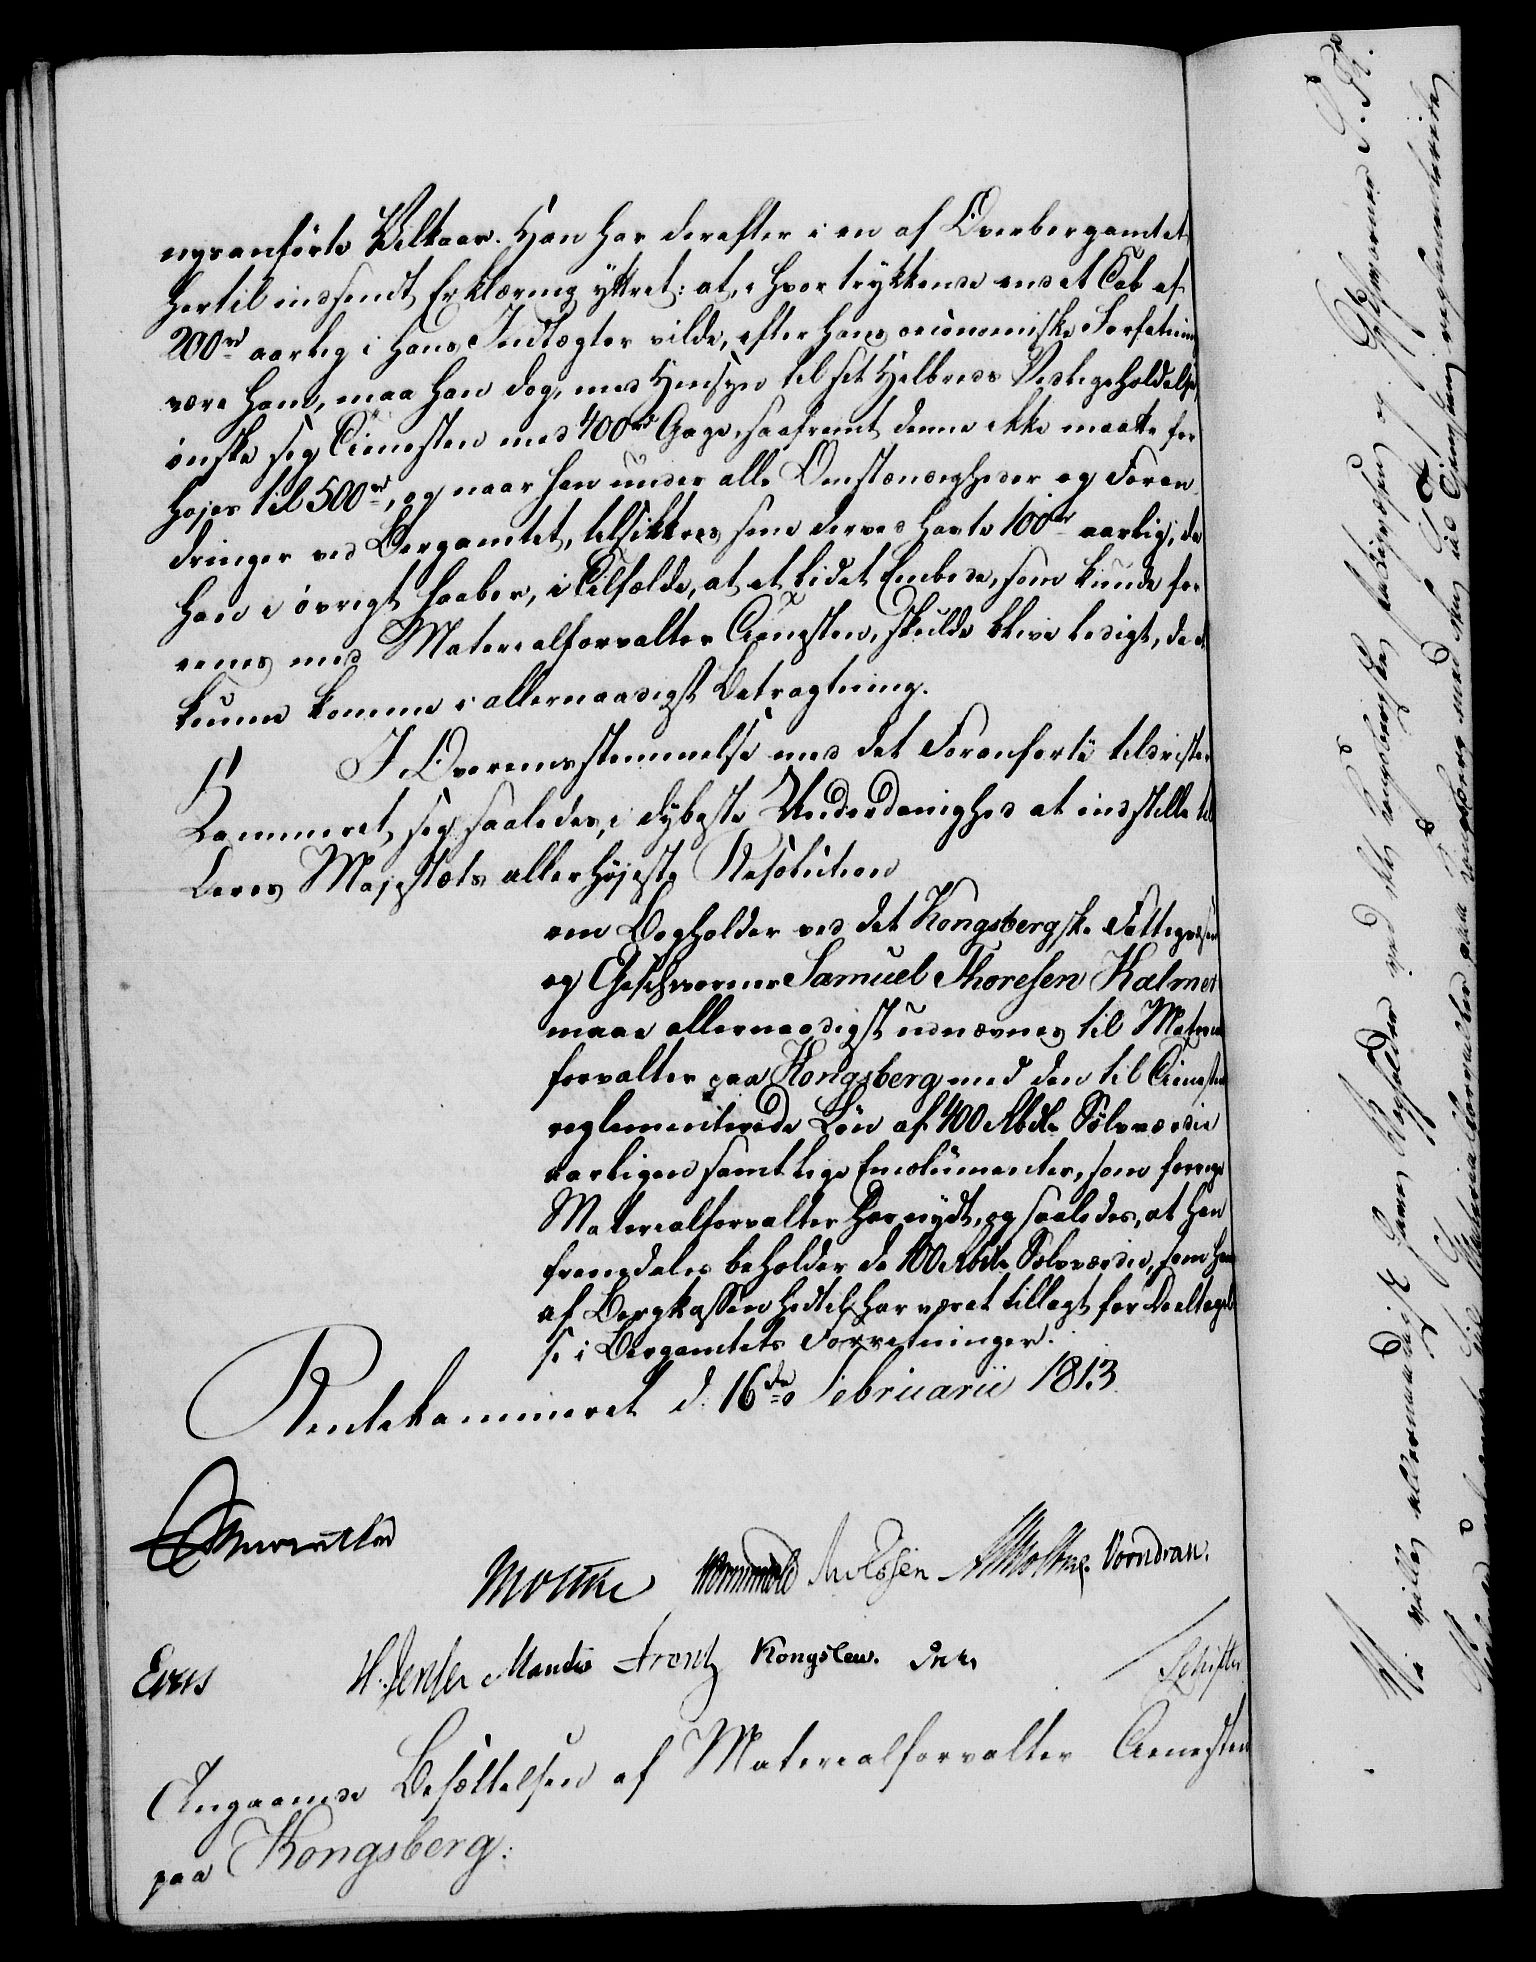 nysanförte Vilkaar. Han har derefter i en af Overbergamtet
hertil indsendt Erklæring yttret: at, i hvor trykkende end et Tab af
200rd aarlig i hans Indtægter vilde, efter hans oeconomiske Forfatning
være ham, maa han dog, med Hensyn til sit Helbreds Vedligeholdelse,
önske sig Tienesten med 400rd Gage, saafremt denne ikke maatte for
höjes til 500rd, og naar han under alle Omstændigheder og Foran
dringer ved Bergamtet, tilsikkres sine derved havte 100rd aarlig, da
han i övrigt haaber, i Tilfælde, at et lidet Embede, som kunde for
eenes med Materialforvalter Tienesten, skulde blive ledigt, da at
kunne komme i allernaadigst Betragtning.
I Overensstemmelse med det Foranförte tildrister
Kammeret sig saaledes, i dybeste Underdanighed at indstille til
Deres Majestæts allerhöjeste Resolution
om Bogholder ved det Kongsbergske Fattigvæsen
og Geschworner Samuel Thoresen Kalmer
maae allernaadigst udnævnes til Material
forvalter paa Kongsberg med den til Tienesten
reglementerede Lön af 400 Rbdlr Sölvværdie
aarligen samt lige Emolumenter, som forrige
Materialforvalter har nydt, og saaledes, at han
fremdeles beholder de 100 Rbdlr Sölvværdie, som ham
af Bergkassen hidtil har været tillagt for Deeltagel
se i Bergamtets Forretninger.
Rentekammeret d. 16de Februarii 1813.
Moltke Wormskiold AMoltke. Vorndran.
H. Jensen Mandix Arentz Kongslew.
Schifter
Angaaende Besættelsen af Materialforvalter Tienesten
paa Kongsberg.
Vi ville allernaadigst Samuel Thoresen Kalmer